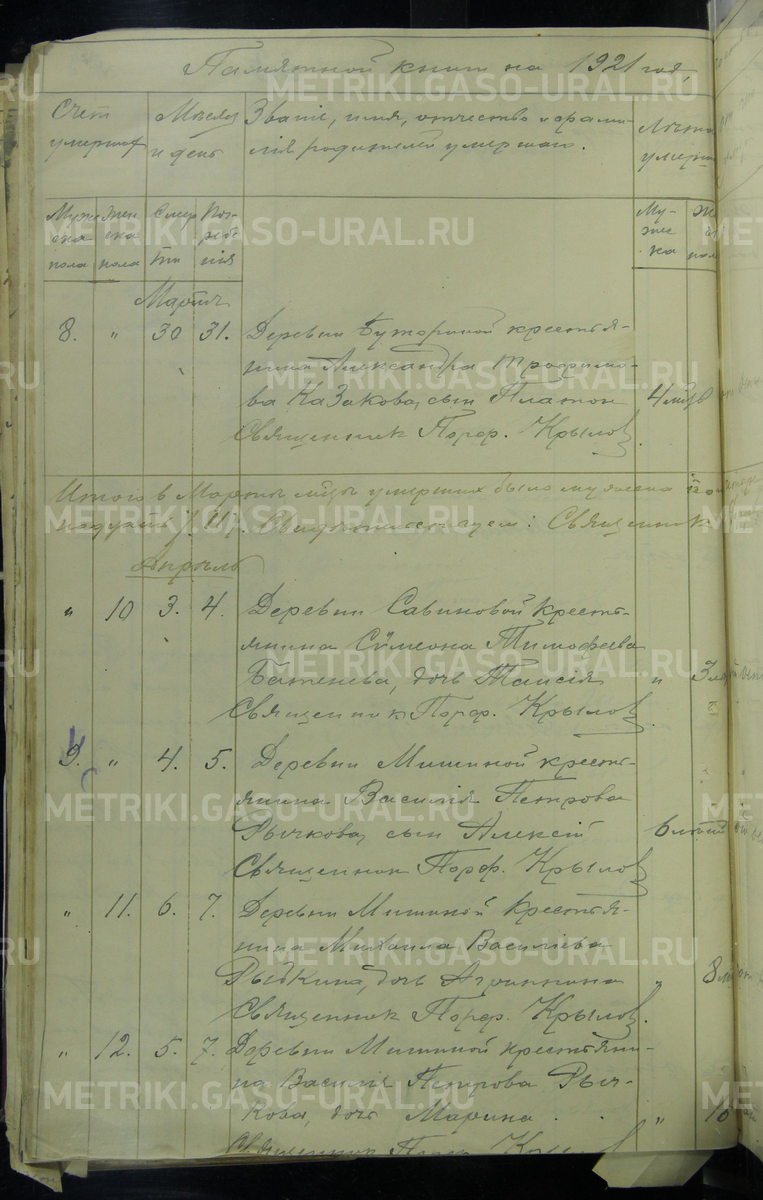 Памятной книги на 1921 год,
Счет умерших
Месяц и день
Званіе, имя, отчество и фами-
лія родителей умершаго.
Лета умерш
Муже
ска
пола
Жен
ска
пола
Смер
ти
Пог-
ребе
нія
Му-
жес
ка
Же
пол
Марта
8. " 30 31. Деревни Буториной крестья-
нина Александра Трофимо-
ва Казакова, сын Платон 4 мца
Священник Порф. Крылов
Итого в Марте мце умерших было мужеска
Священник
Апрель
" 10 3. 4. Деревни Савиновой кресть-
янина Сѵмеона Тимофеева
Баженева, дочь Таисія "
Священник Порф. Крылов
9. " 4. 5. Деревни Мишиной кресть-
янина Василія Петрова
Рычкова, сын Алексій 6 лет
Священник Порф. Крылов
" 11. 6. 7. Деревни Мишиной крестья-
нина Михаила Василіева
Рыбкина, дочь Агрипина " 8
Священник Порф. Крылов.
" 12. 5. 7. Деревни Мишиной крестьяни-
на Василія Петрова Рыч-
кова, дочь Марина. " 10
Священник Порф. Крылов
METRIKI.GASO-URAL.RU